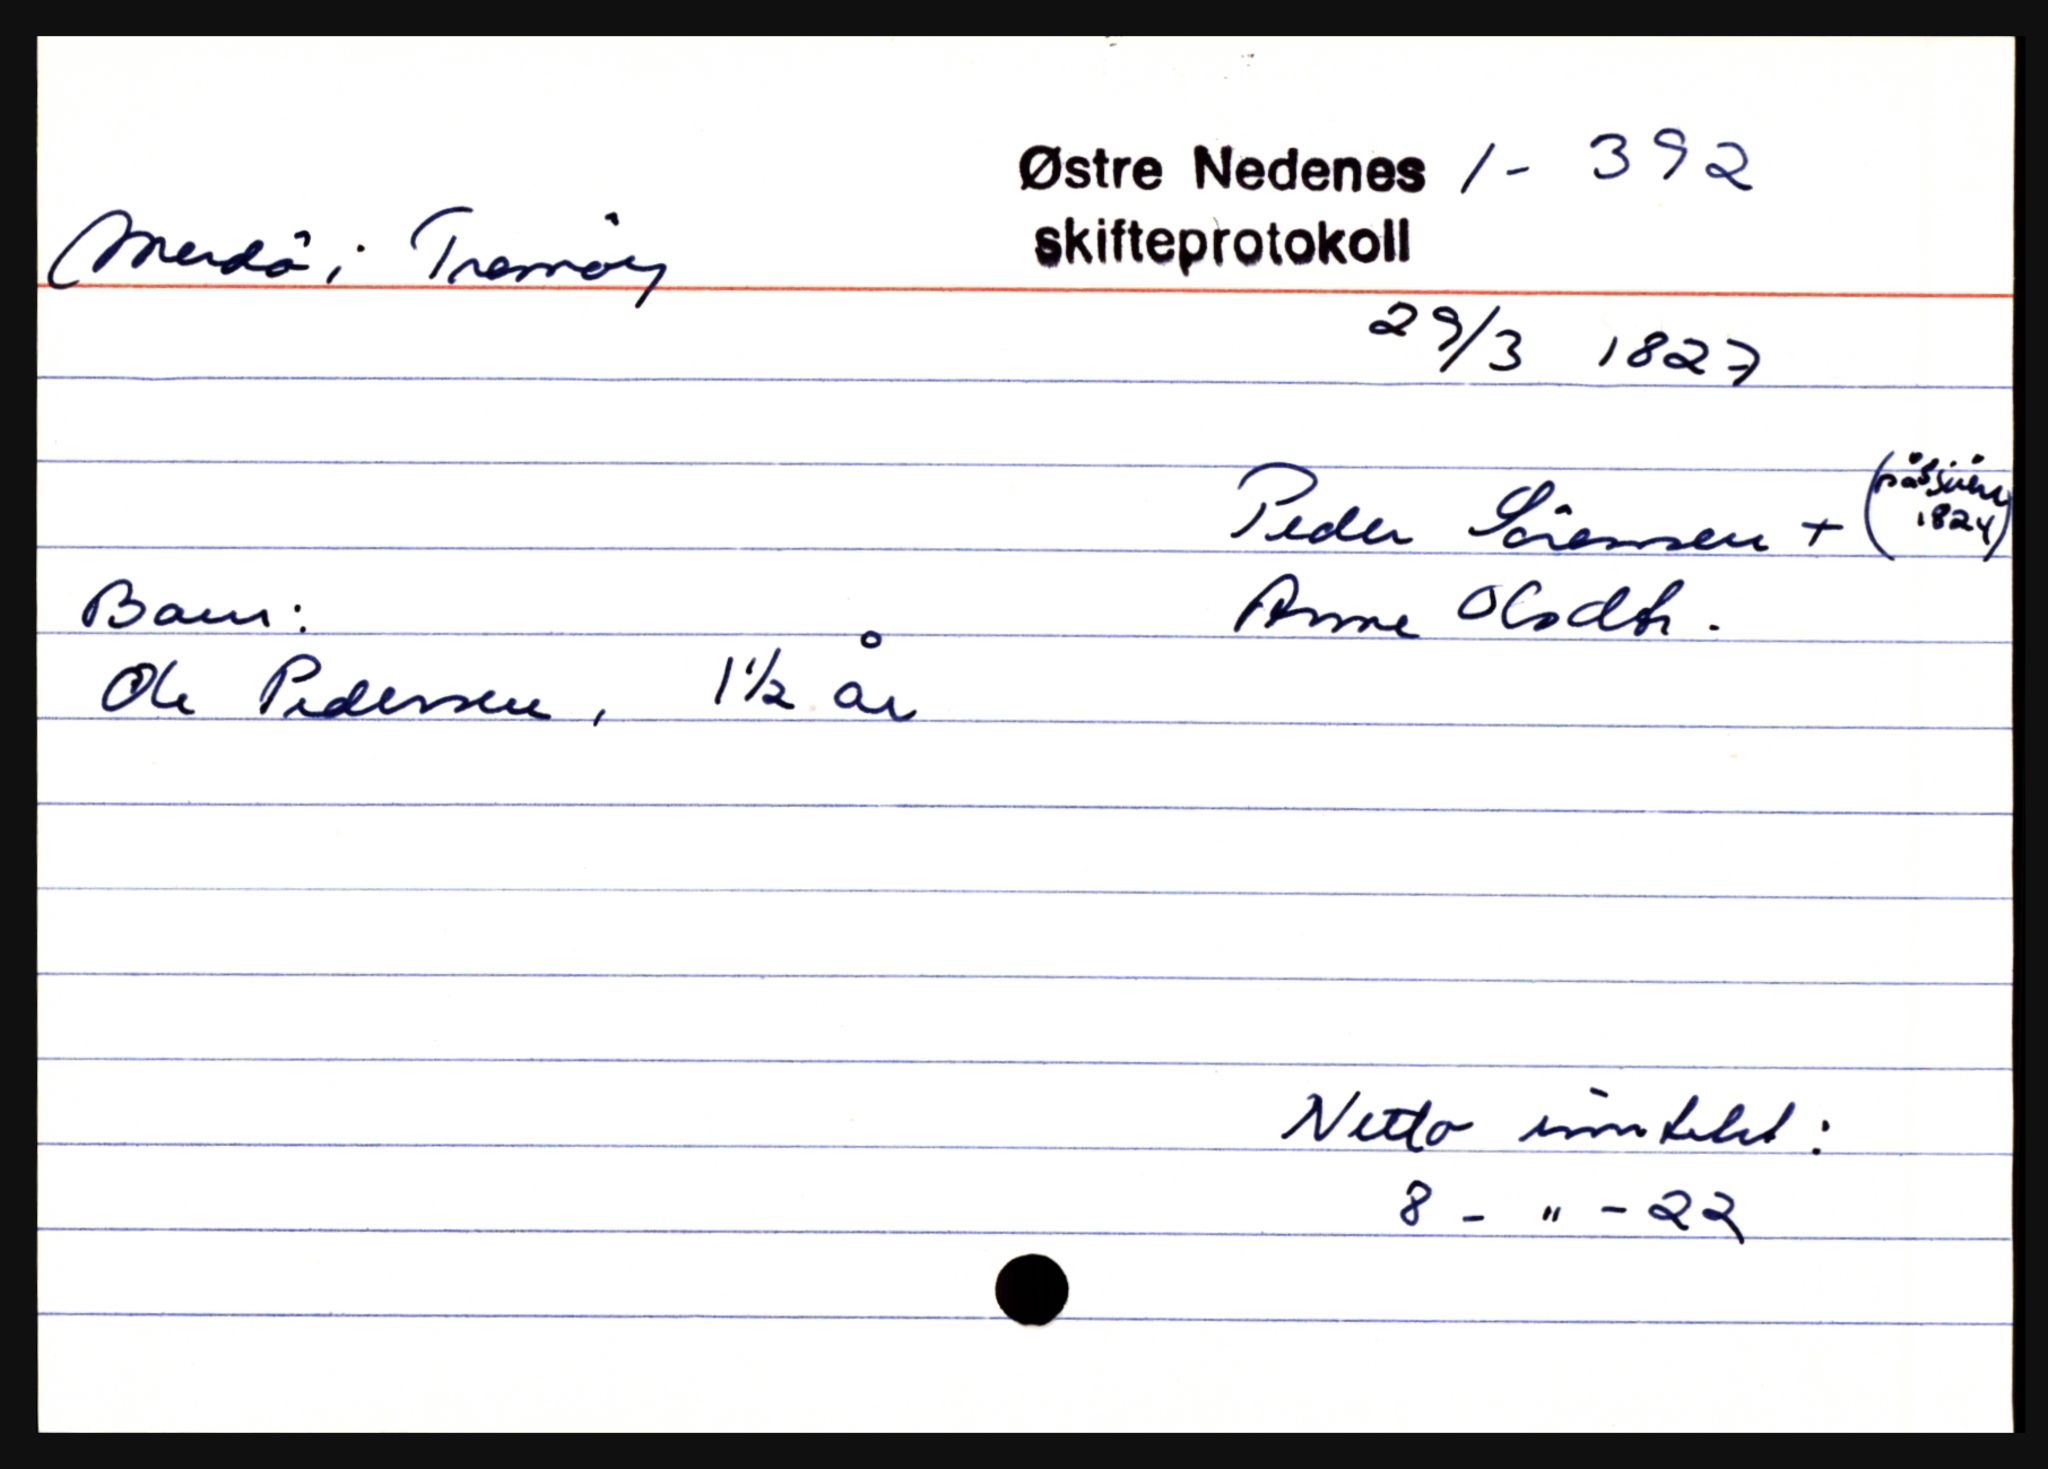 Østre Nedenes 1 - 392
skifteprotokoll
Merdö i Tromöy
29/3 1827
Peder Sörensen + (på sjöen
1824)
Anne Olsdtr.
Barn:
Ole Pedersen, 1 1/2 år
Netto inntekt:
8 - " - 22